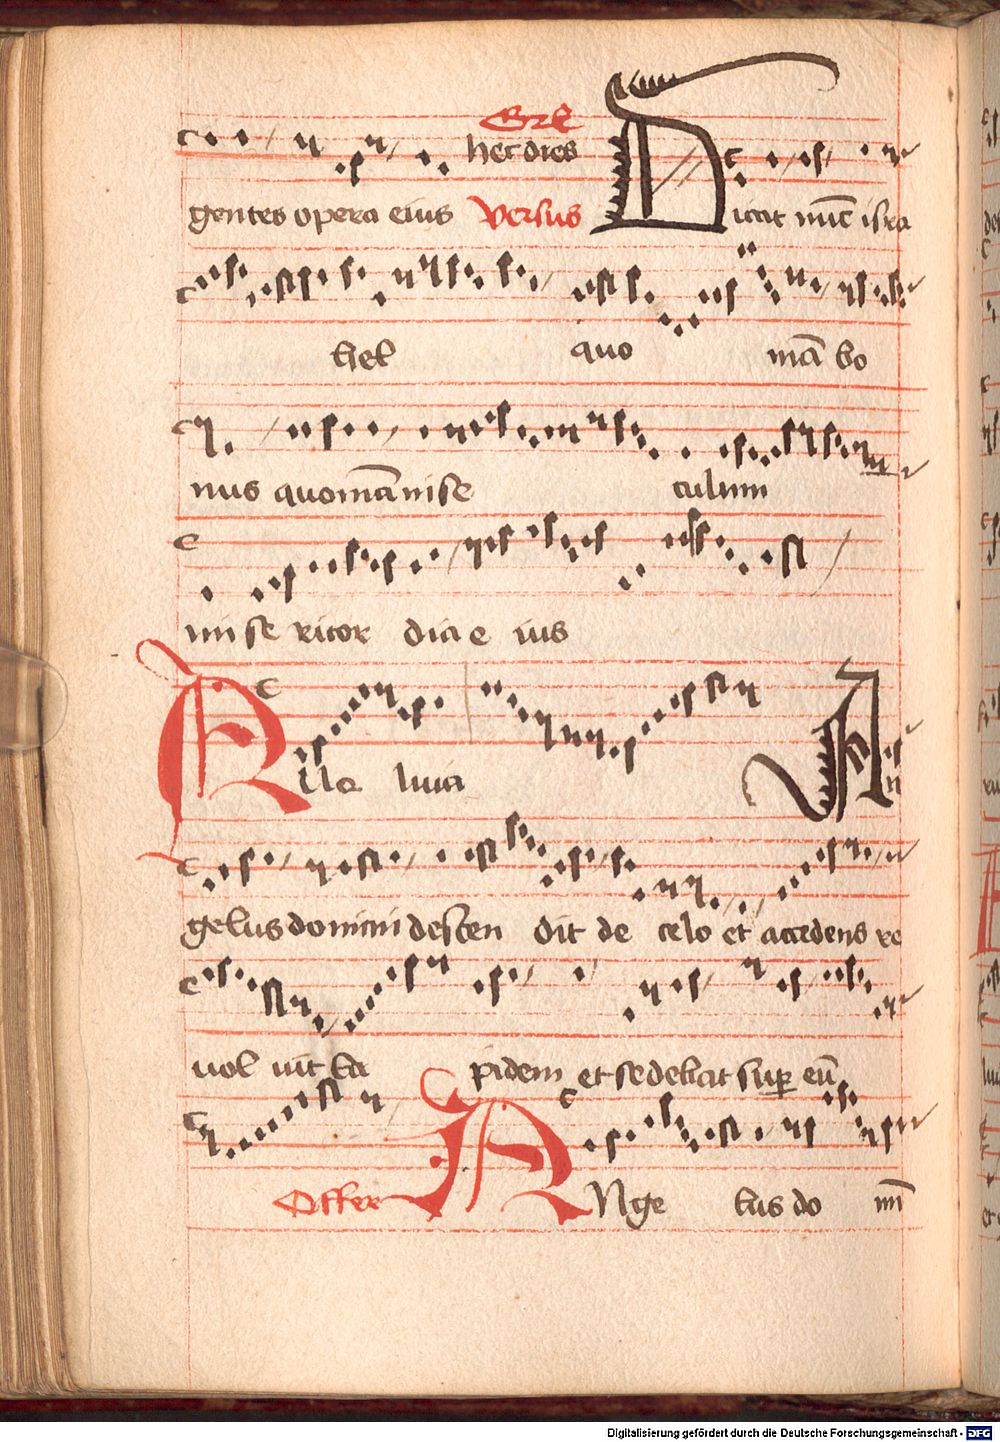 Gral
hec dies
gentes opera eius Versus Dicat nūc isra
hel quo niā bo
nus quoniā in se culum
mi se ricor dia e ius
Alle luia An
gelus domini descen dit de celo et accedens re
uol uit la pidem et sedebat sup eū
Offer ANge lus do mī
Digitalisierung gefördert durch die Deutsche Forschungsgemeinschaft - DFG